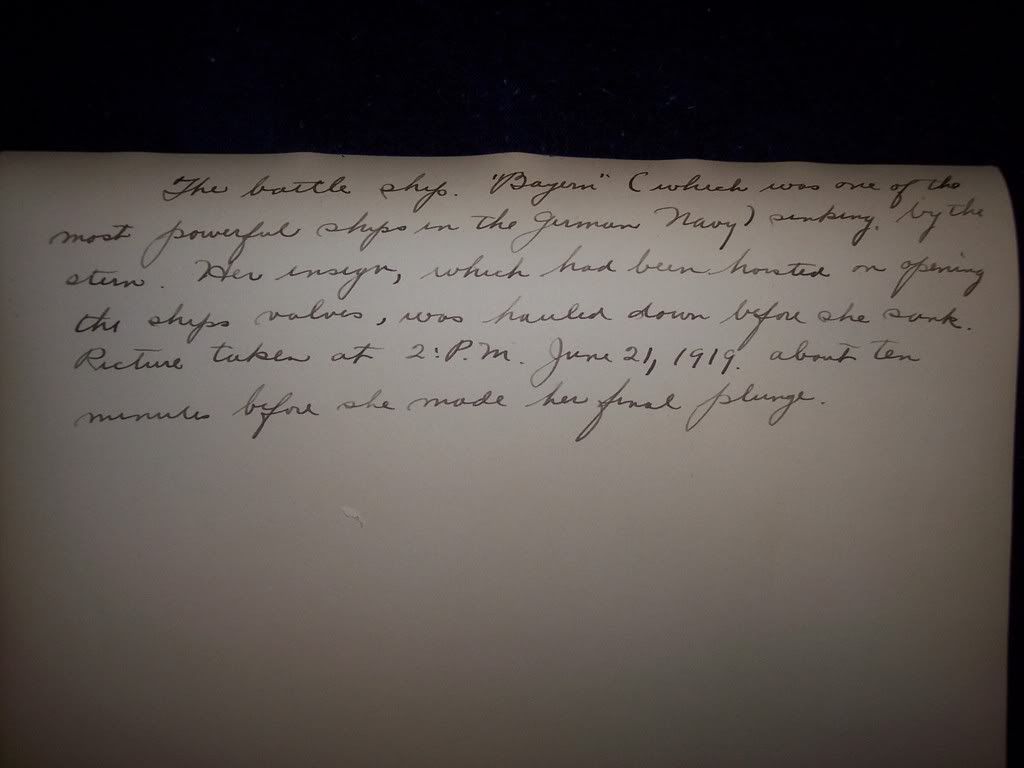 The battle ship. "Bayern" (which was one of the
most powerful ships in the German Navy) sinking. by the
stern. Her ensign, which had been hoisted on opening
the ships valves, was hauled down before she sank.
Picture taken at 2: P.M. June 21, 1919. about ten
minutes before she made her final plunge.